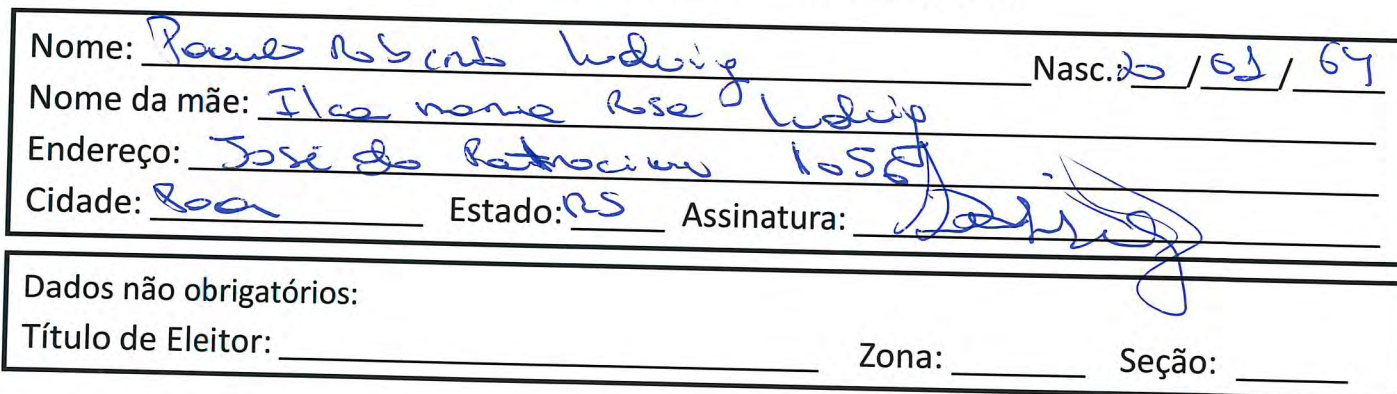 Nome: Paulo Roberto Ludwig Nasc.: 20 / 01 / 64
Nome da mãe: Ilca Maria Rosa Ludwig
Endereço: José do Patrocinio 1056
Cidade: Poa Estado: RS Assinatura:
Dados não obrigatórios:
Título de Eleitor: Zona: Seção: